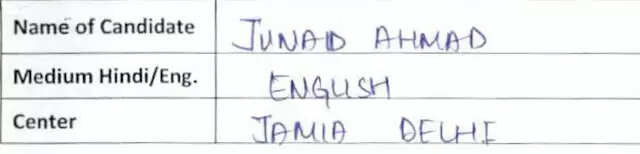 Name of Candidate JUNAID AHMAD
Medium Hindi/Eng. ENGLISH
Center JAMIA DELHI